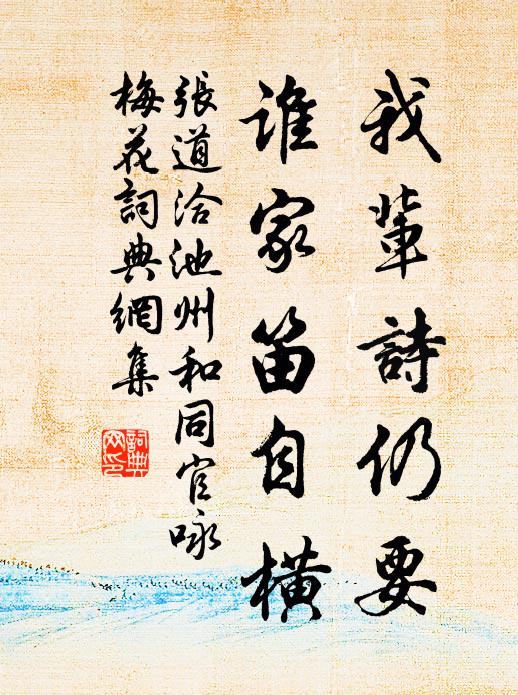 我輩詩仍要
誰家笛自橫
張道洽池州和同官咏
梅花詞典網集
詞典網印